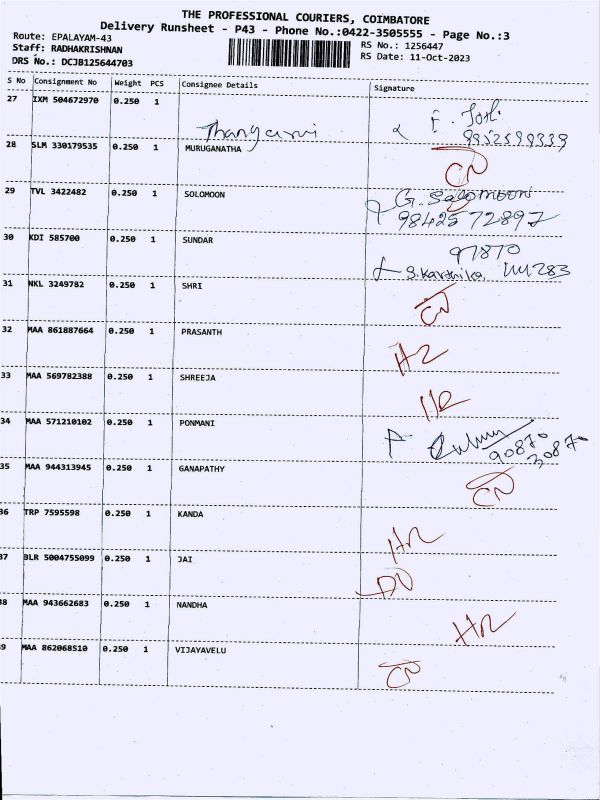 THE PROFESSIONAL COURIERS, COIMBATORE
Delivery Runsheet - P43 - Phone No.:0422-3505555 - Page No.:3
Route: EPALAYAM-43
RS No.: 1256447
Staff: RADHAKRISHNAN
RS Date: 11-Oct-2023
DRS No.: DCJB125644703
S No Consignment No Weight PCS Consignee Details Signature
27 IXM 504672970 0.250 1
28 SLM 330179535 0.250 1 MURUGANATHA CN
29 TVL 3422482 0.250 1 SOLOMOON G. Salomoon
9842572897
30 KDI 585700 0.250 1 SUNDAR 97870
S. Karthika
31 NKL 3249782 0.250 1 SHRI CN
32 MAA 861887664 0.250 1 PRASANTH HR
33 MAA 569782388 0.250 1 SHREEJA HR
34 MAA 571210102 0.250 1 PONMANI 90870
30870
35 MAA 944313945 0.250 1 GANAPATHY CN
36 TRP 7595598 0.250 1 KANDA HR
37 BLR 5004755099 0.250 1 JAI
38 MAA 943662683 0.250 1 NANDHA HR
39 MAA 862068510 0.250 1 VIJAYAVELU CN